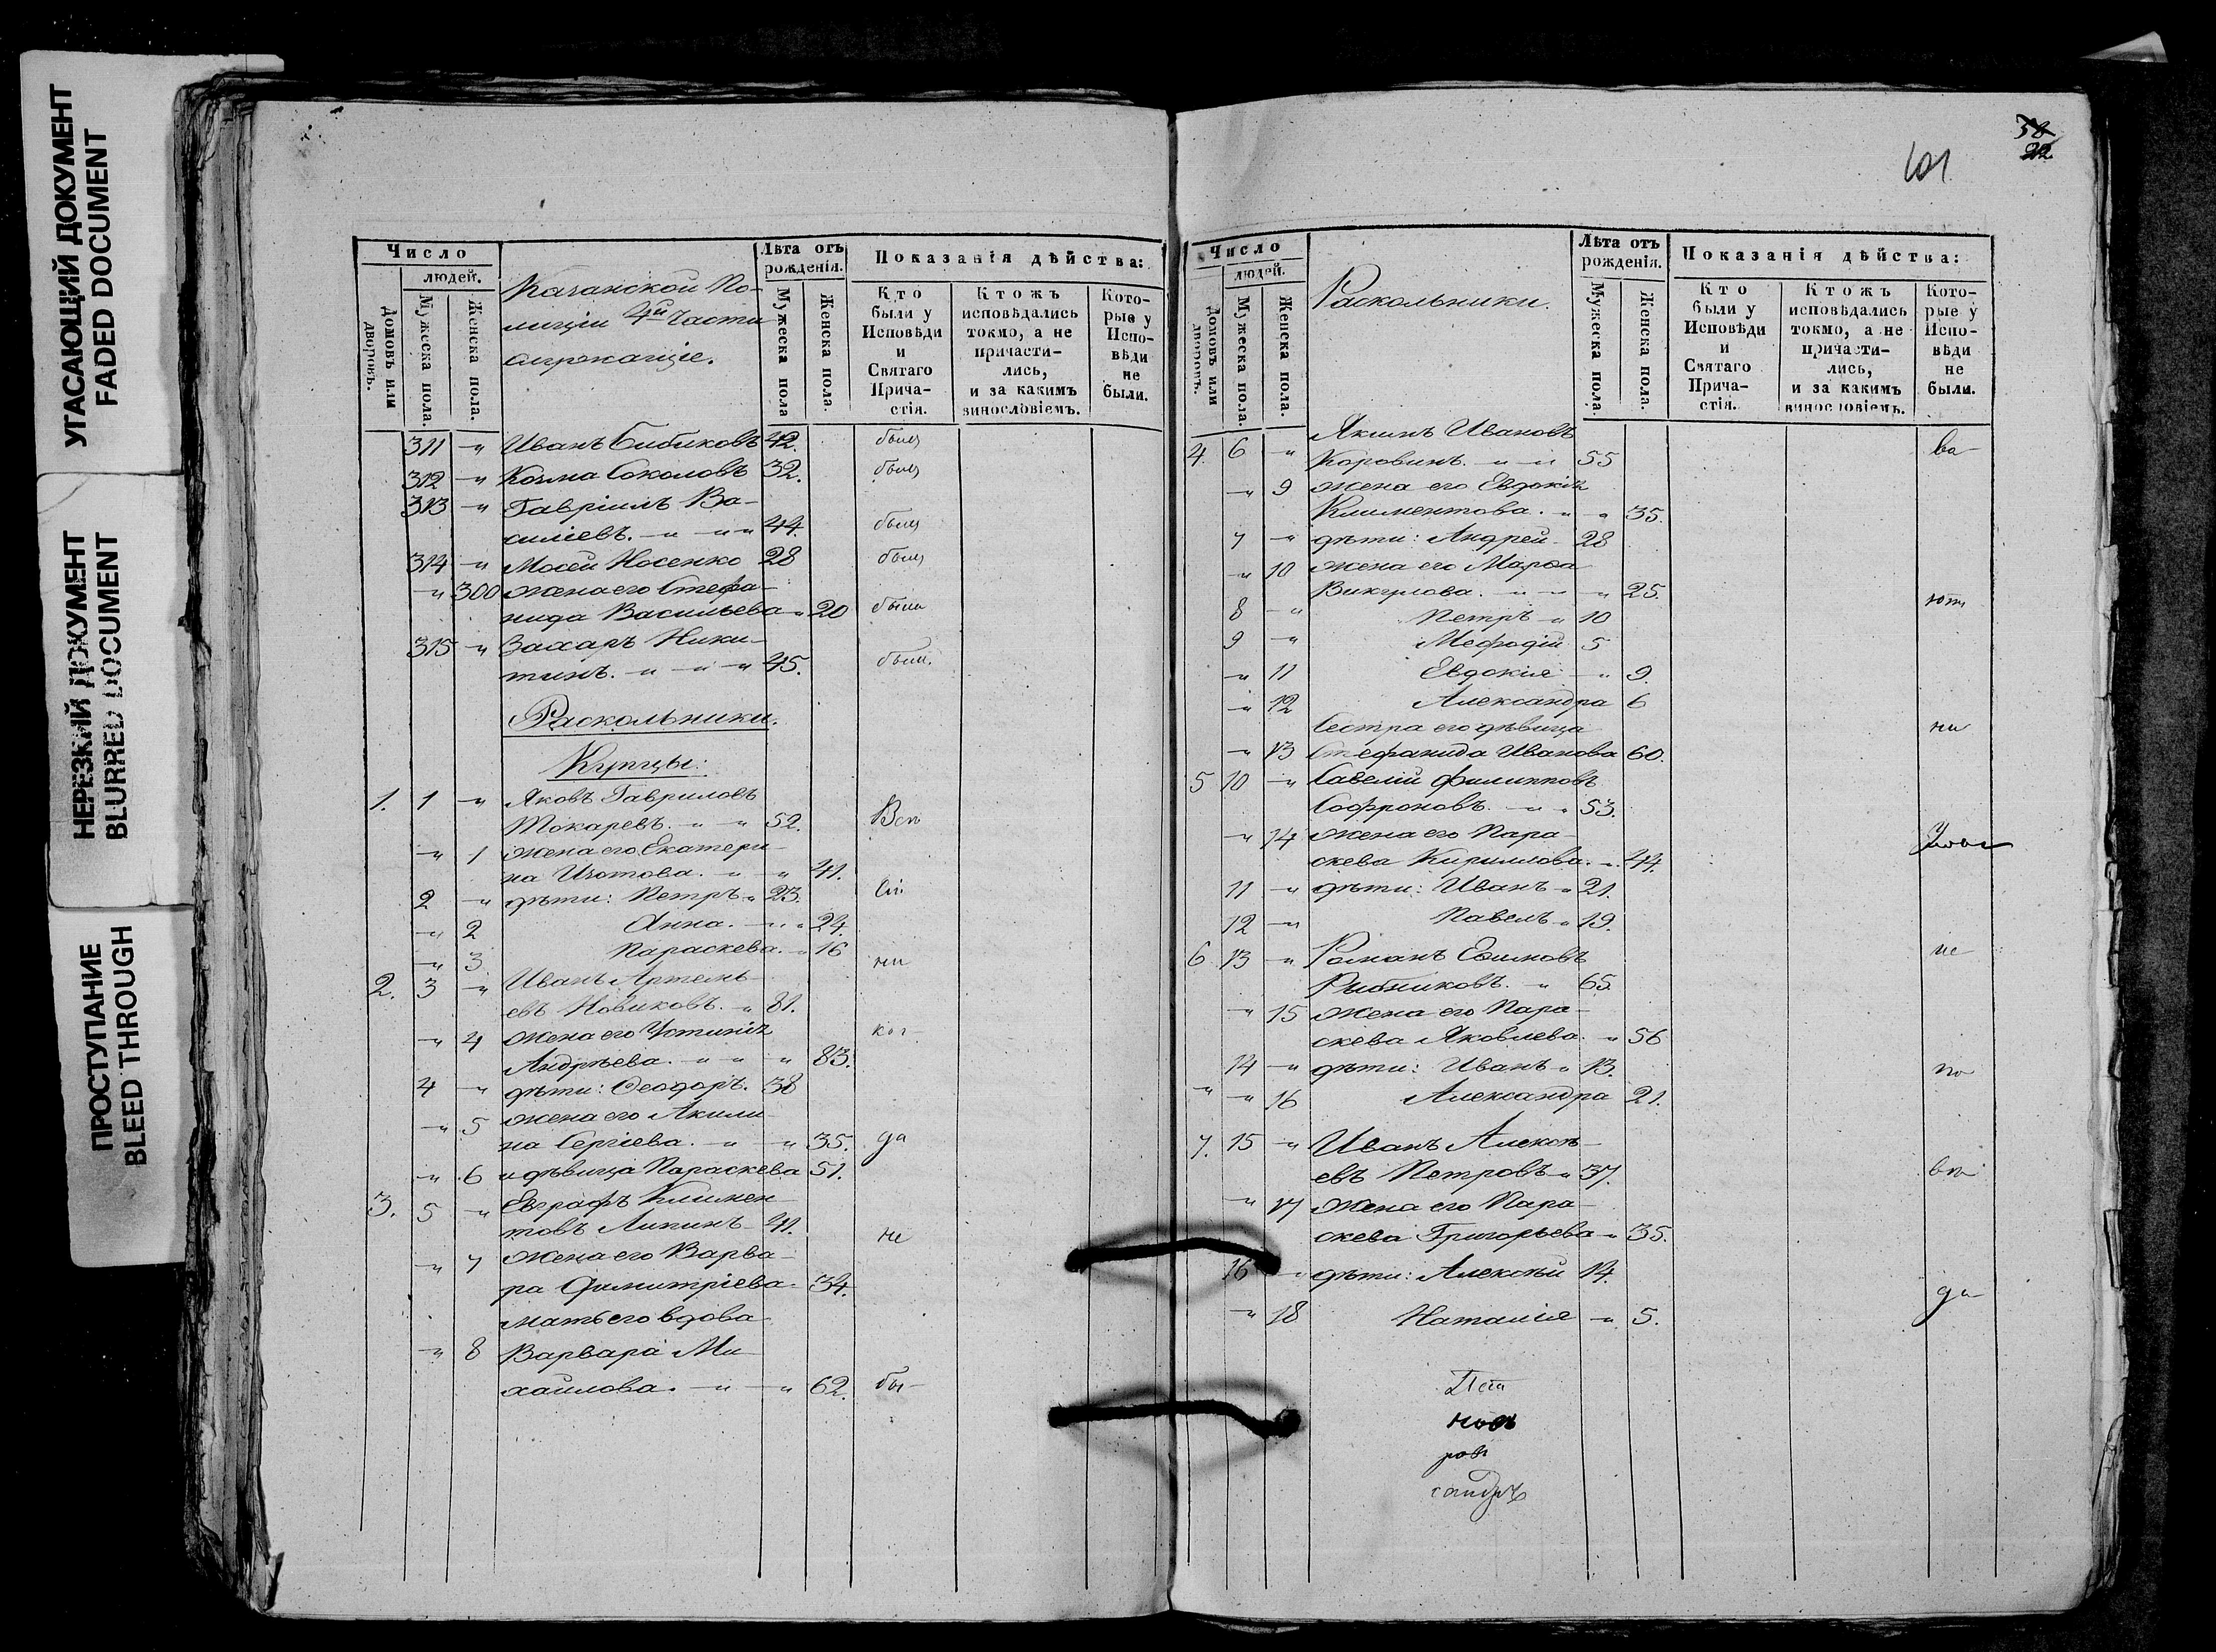 УГАСАЮЩИЙ ДОКУМЕНТ
FADED DOCUMENT
НЕРЕЗКИЙ ДОКУМЕНТ
BLURRED DOCUMENT
ПРОСТУПАНИЕ
BLEED THROUGH
Число
людей.
Домовъ или дворовъ.
Мужеска пола.
Женска пола.
Казанской По-
лиціи 4й части
служащіе.
Лѣта отъ рожденія.
Мужеска пола
Женска пола.
Показанія дѣйства:
Кто были у Исповѣди и Святаго Прича-стія.
Ктожъ исповѣдались токмо, а не причасти-лись, и за какимъ винословіемъ.
Кото-рые у Испо-вѣди не были.
311 " Иванъ Бибиковъ 42. былъ
312 " Козма Соколовъ 32. былъ
313 " Гавріилъ Ва-
силіевъ. " " " 44. былъ
314 " Мосей Носенко 28 былъ
" 300 жена его Стефа-
нида Васильева " 20 была
315 " Захаръ Ники-
тинъ. " " " 45. были.
Раскольники.
Купцы:
1. 1 " Яковъ Гавриловъ
Токаревъ. " " 52. Всѣ
" 1 жена его Екатери-
на Изотова. " " 41.
2 " дѣти: Петръ " 23. сіи
" 2 Анна. " " 24.
" 3 Параскева. " 16
2. 3 " Иванъ Артемь- ни
евъ Новиковъ. " 81.
" 4 жена его Устинія ког-
Андреева. " " " 83.
4 " дѣти: Ѳеодоръ. 38
" 5 жена его Акили-
на Сергіева. " " 35. да
" 6 и дѣвица Параскева 51.
3. 5 " Евграфъ Климен-
товъ Липинъ 41. не
" 7 жена его Варва-
ра Димитріева 34.
мать его вдова
" 8 Варвара Ми-
хайлова. " " 62. бы-
38
22
101
Число
людей.
Домовъ или дворовъ.
Мужеска пола.
Женска пола.
Раскольники.
Лѣта отъ рожденія.
Мужеска пола.
Женска пола.
Показанія дѣйства:
Кто были у Исповѣди и Святаго Прича-стія.
Ктожъ исповѣдались токмо, а не причасти-лись, и за какимъ винословіемъ.
Кото-рые у Испо-вѣди не были.
4. 6 " Якимъ Ивановъ ва-
Коровинъ. " " 55
" 9 жена его Евдокія
Климентова. " " 35.
7 " дѣти: Андрей 28
" 10 жена его Марѳа
Викулова. " " " 25.
8 " Петръ " 10 ютъ
9 " Мефодій 5
" 11 Евдокія " 9.
" 12 Александра 6
Сестра его дѣвица ни
" 13 Стефанида Иванова 60.
5 10 " Савелій Филипповъ
Софроновъ. " " 53.
" 14 жена его Пара-
скева Кириллова. " 44.
11 " дѣти: Иванъ " 21.
12 " Павелъ " 19.
6 13 " Романъ Ефимовъ не
Рыбниковъ. " 65.
" 15 жена его Пара-
скева Яковлева. " 56
14 " дѣти: Иванъ " 13. по
" " 16 Александра 21.
7. 15 " Иванъ Алексѣ-
евъ Петровъ " 37.
" 17 жена его Пара-
скева Григорьева " 35.
16 " дѣти: Алексѣй 14.
" 18 Наталія " 5. да